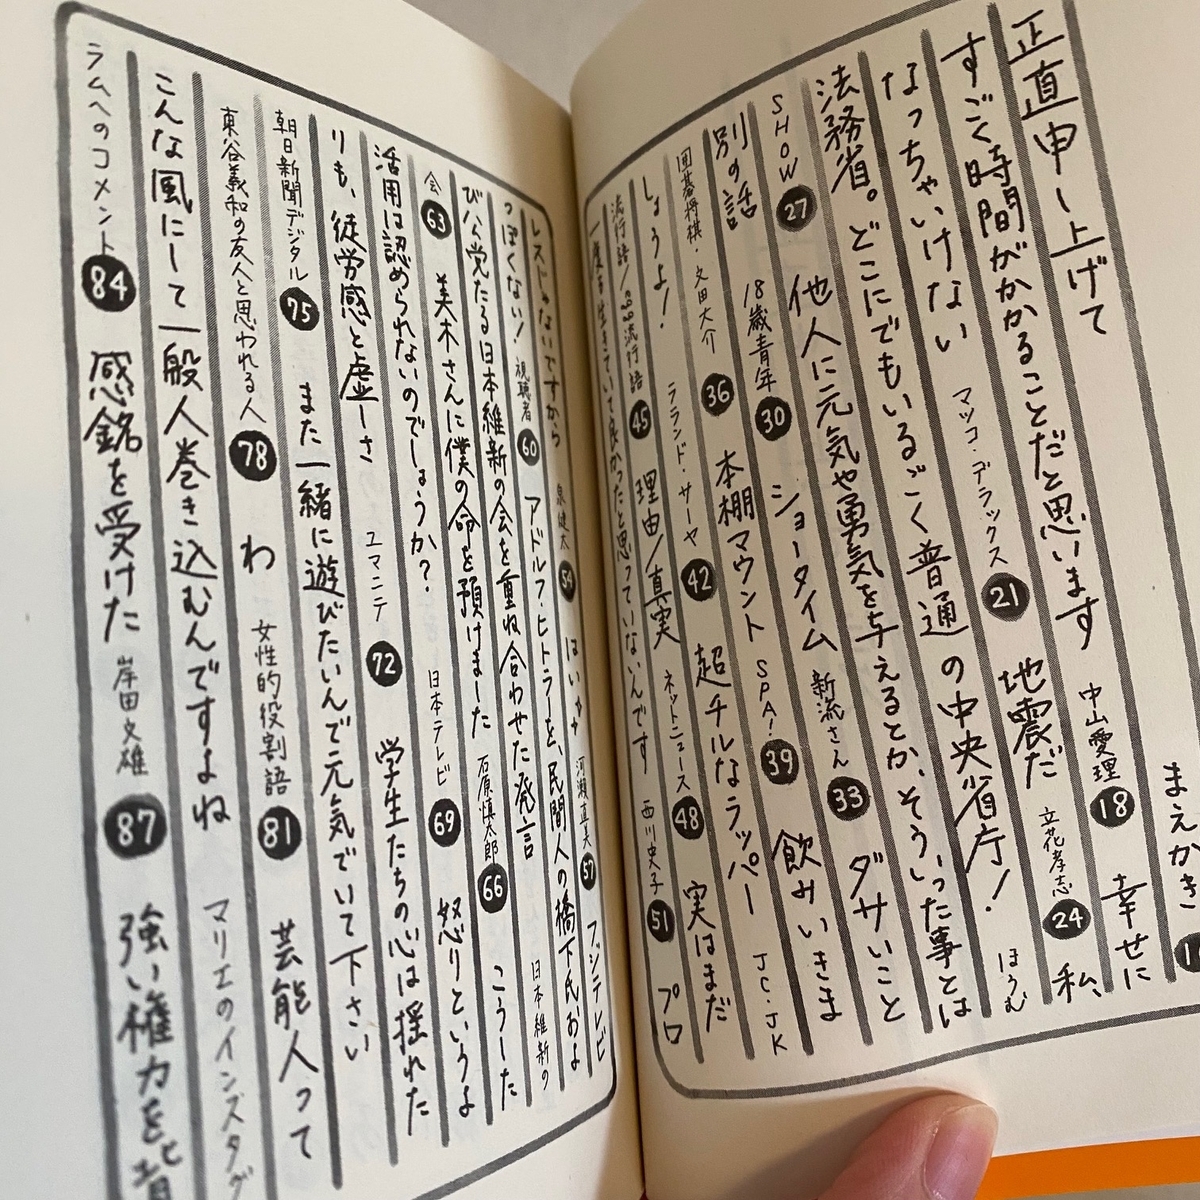 まえかき
正直申し上げて
すごく時間がかかることだと思います 中山愛理 18 幸せに
なっちゃいけない マツコ・デラックス 21 地震だ 立花孝志 24 私、
法務省。どこにでもいるごく普通の中央省庁! ほうむ
SHOW 27 他人に元気や勇気を与えるとか、そういった事とは
別の話 18歳青年 30 ショータイム 新流さん 33 ダサいこと
囲碁将棋・文田大介 36 本棚マウント SPA! 39 飲みいきま
しょうよ! ラランド・サーヤ 42 超チルなラッパー JC・JK
流行語 45 理由/真実 ネットニュース 48 実はまだ
一度も生きていて良かったと思っていないんです 西川史子 51 プロ
レスじゃないですから 泉健太 54 はい 河瀨直美 57 フジテレビ
っぽくない! 視聴者 60 アドルフ・ヒトラーを、民間人の橋下氏およ
び公党たる日本維新の会を重ね合わせた発言 日本維新の
会 63 美木さんに僕の命を預けました 石原慎太郎 66 こうした
活用は認められないのでしょうか? 日本テレビ 69 怒りというよ
りも、徒労感と虚しさ ユマニテ 72 学生たちの心は揺れた
朝日新聞デジタル 75 また一緒に遊びたいんで元気でいて下さい
東谷義和の友人と思われる人 78 わ 女性的役割語 81 芸能人って
こんな風にして一般人巻き込むんですよね マリエのインスタグ
ラムへのコメント 84 感銘を受けた 岸田文雄 87 強い権力を背